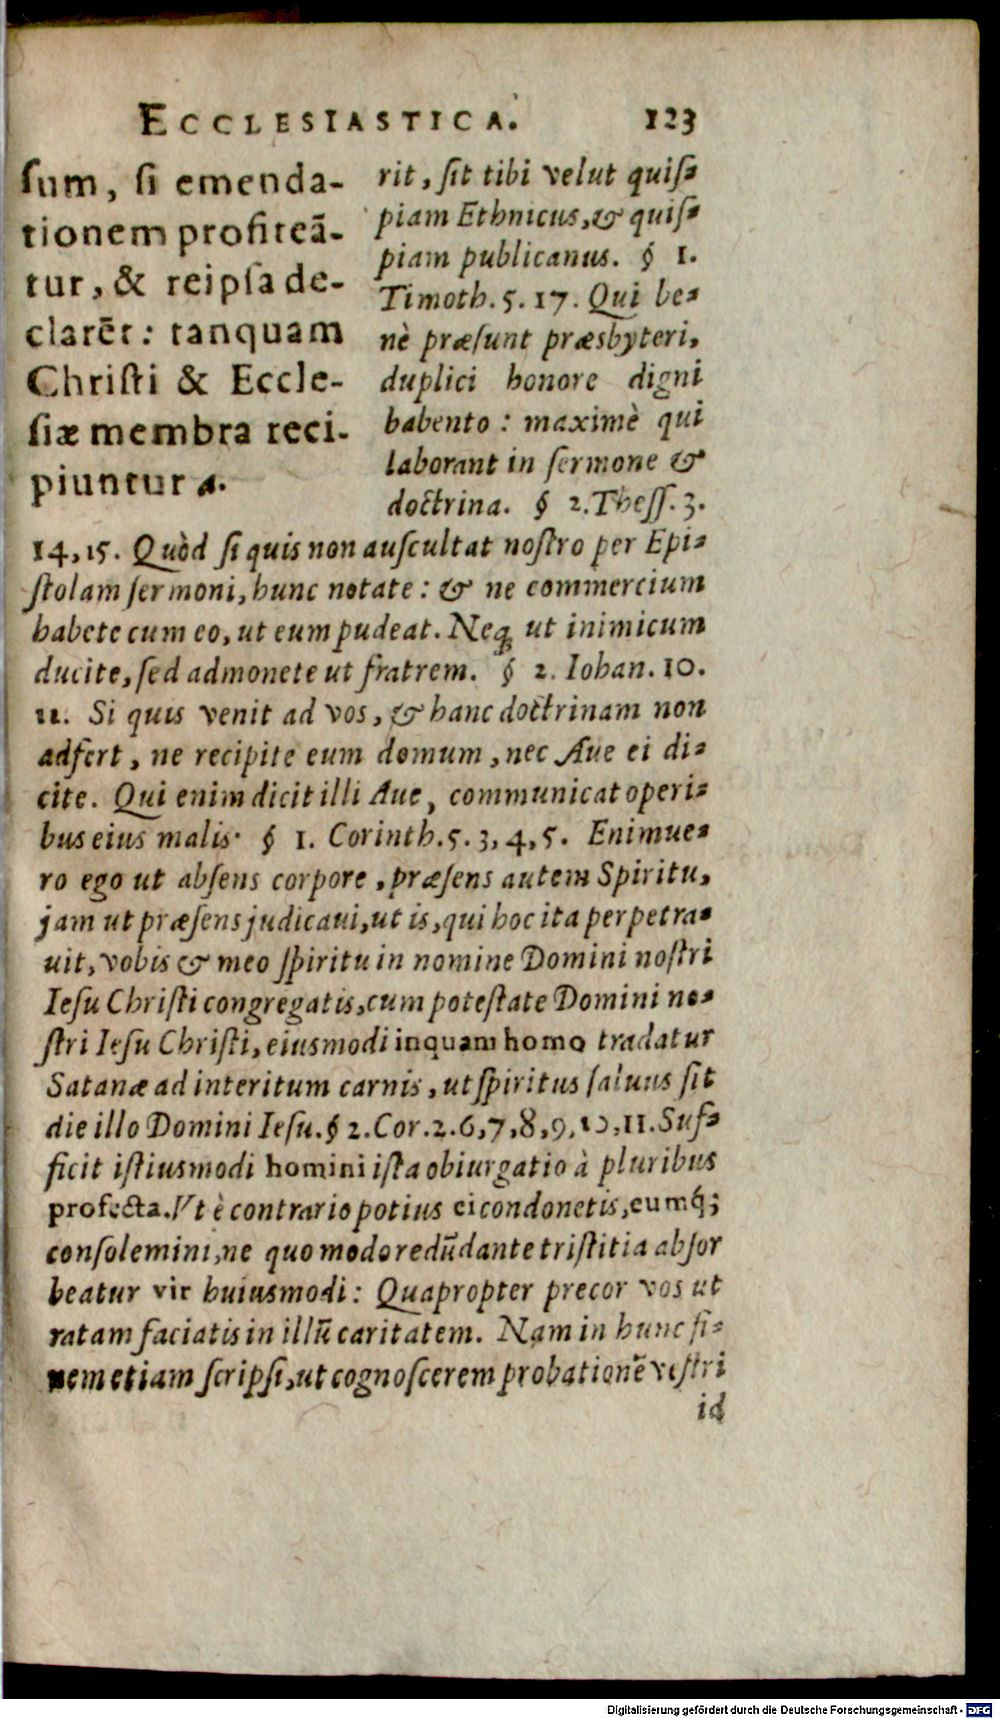 ECCLESIASTICA. 123
ſum, ſi emenda-
tionem profiteã-
tur, & reipſa de-
clarēt: tanquam
Chriſti & Eccle-
ſiæ membra reci-
piuntur a.
rit, ſit tibi velut quiſ-
piam Ethnicus, & quiſ-
piam publicanus. § 1.
Timoth. 5. 17. Qui be-
nè præſunt præsbyteri,
duplici honore digni
habento: maximè qui
laborant in ſermone &
doctrina. § 2. Theſſ. 3.
14, 15. Quòd ſi quis non auſcultat noſtro per Epi-
ſtolam ſermoni, hunc notate: & ne commercium
habete cum eo, ut eum pudeat. Neq; ut inimicum
ducite, ſed admonete ut fratrem. § 2. Iohan. 10.
11. Si quis venit ad vos, & hanc doctrinam non
adfert, ne recipite eum domum, nec Aue ei di-
cite. Qui enim dicit illi Aue, communicat operi-
bus eius malis. § 1. Corinth. 5. 3, 4, 5. Enimue-
ro ego ut abſens corpore, præſens autem Spiritu,
jam ut præſens judicaui, ut is, qui hoc ita perpetra-
uit, vobis & meo ſpiritu in nomine Domini noſtri
Ieſu Chriſti congregatis, cum poteſtate Domini no-
ſtri Ieſu Chriſti, eiusmodi inquam homo tradatur
Satanæ ad interitum carnis, ut ſpiritus ſaluus ſit
die illo Domini Ieſu. § 2. Cor. 2. 6, 7, 8, 9, 10, 11. Suf-
ficit iſtiusmodi homini iſta obiurgatio à pluribus
profecta. Vt è contrario potius ei condonetis, eumq́;
conſolemini, ne quo modo redũdante triſtitia abſor
beatur vir huiusmodi: Quapropter precor vos ut
ratam faciatis in illũ caritatem. Nam in hunc fi-
nem etiam ſcripſi, ut cognoſcerem probationē veſtri
id
Digitalisierung gefördert durch die Deutsche Forschungsgemeinschaft - DFG